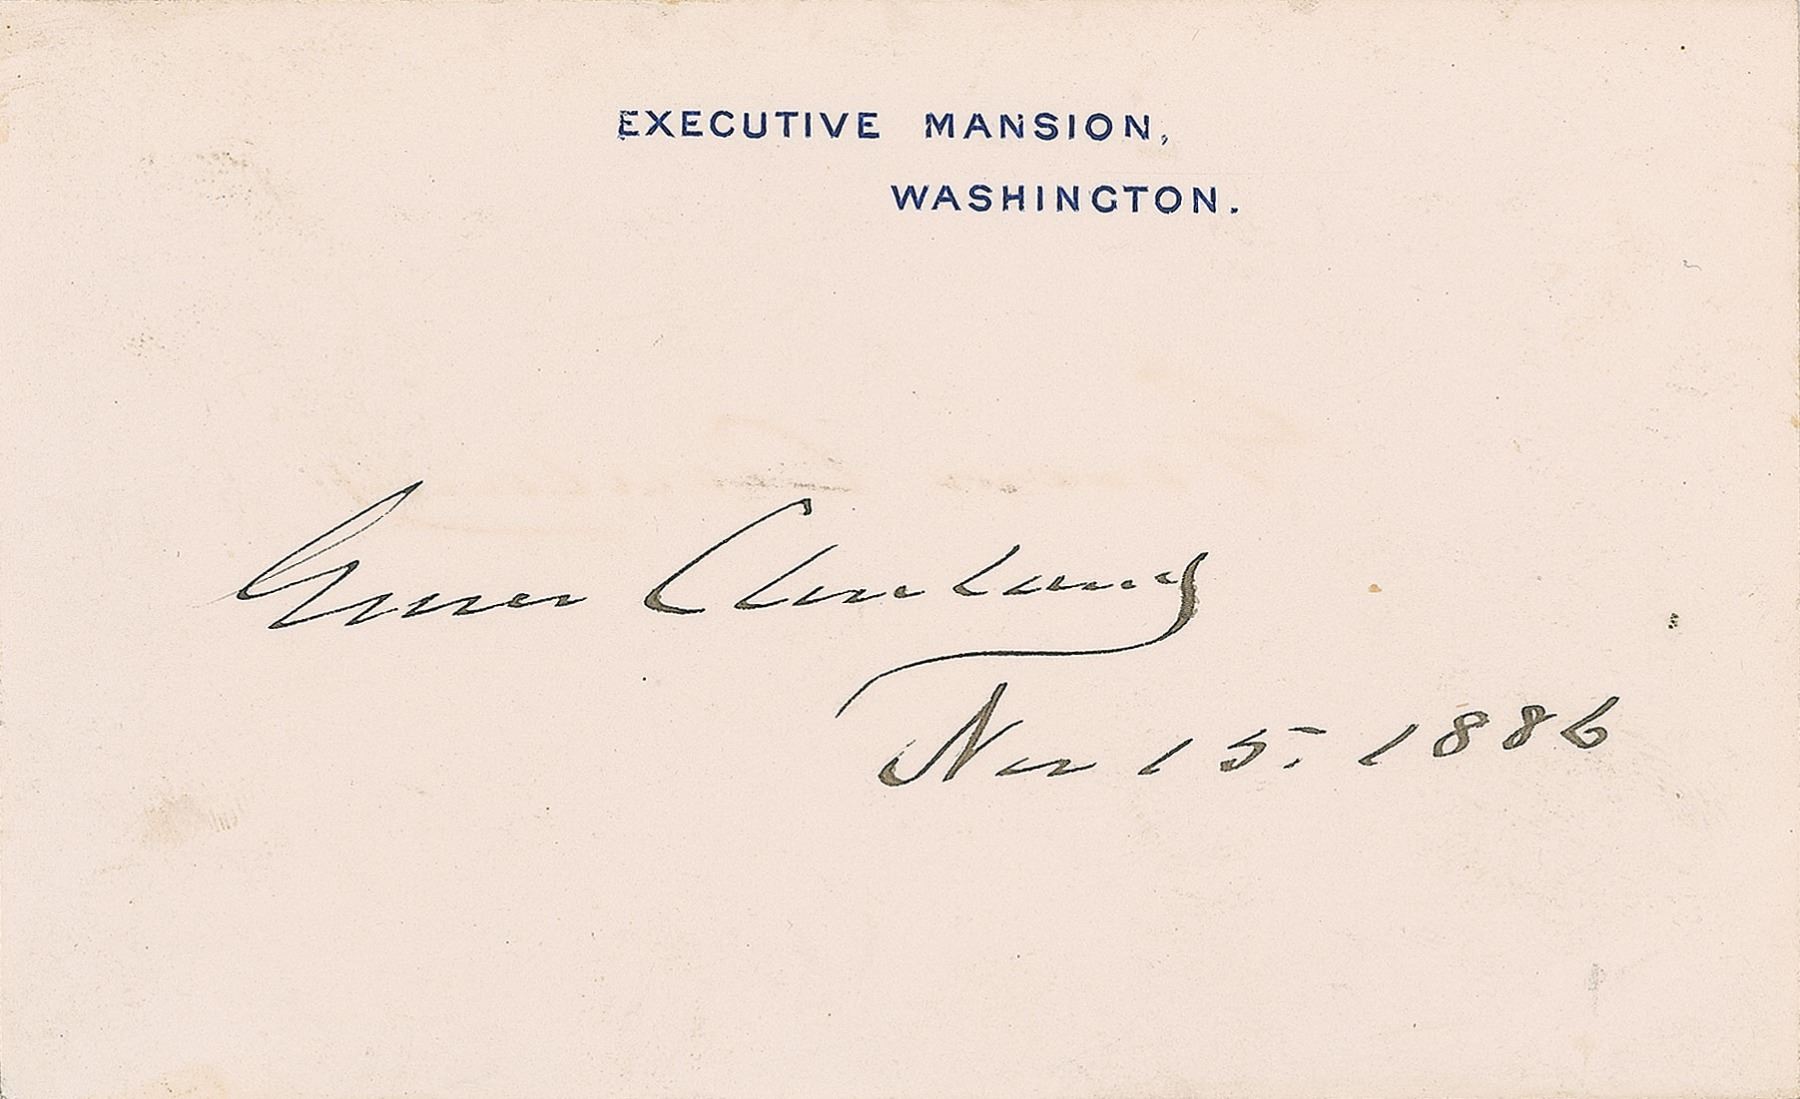 EXECUTIVE MANSION,
WASHINGTON.
Grover Cleveland
Nov 15. 1886